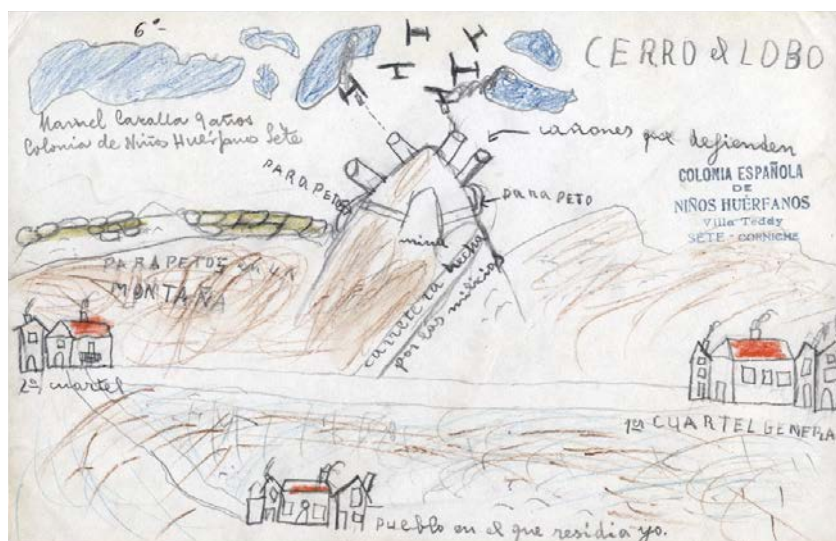 6º-
CERRO el LOBO
Manuel Caralla 9 años
Colonia de Niños Huérfano Sète
cañones que defienden
COLONIA ESPAÑOLA
DE
NIÑOS HUÉRFANOS
Villa Teddy
SÈTE - CORNICHE
PARAPETO
PARAPETO
mina
PARAPETOS en un
MONTAÑA
carretera hecha
por las milicias
2º cuartel
1er CUARTEL GENERA
pueblo en el que residia yo.